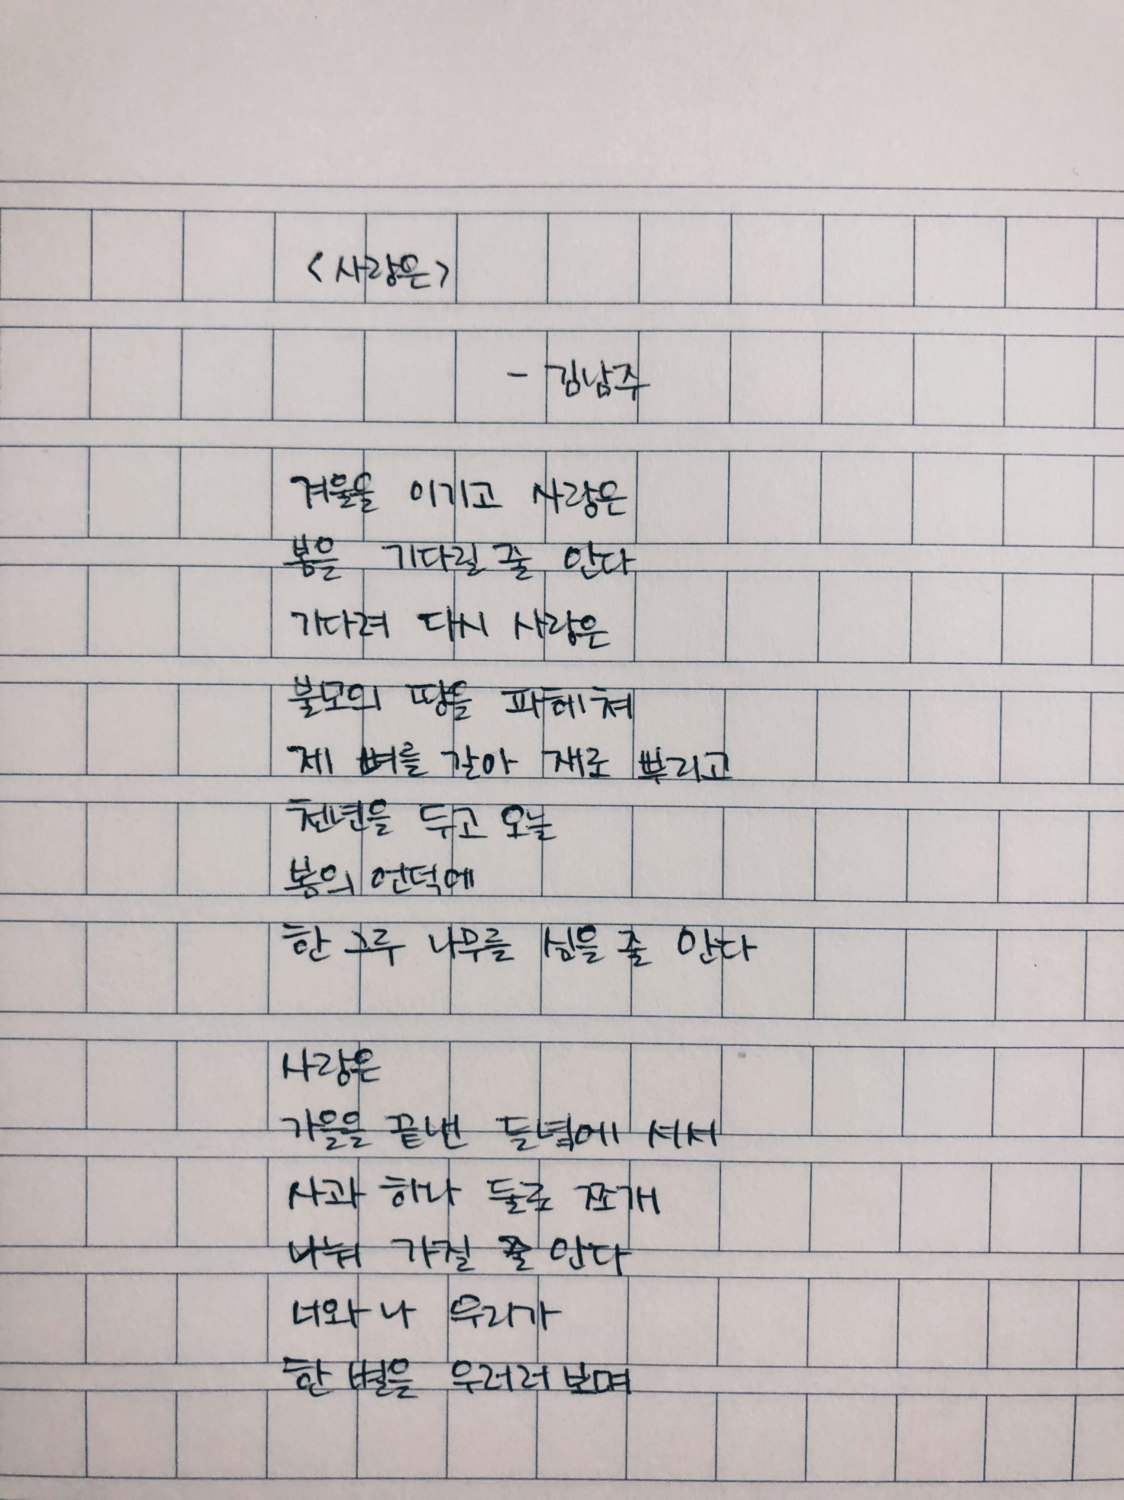 <사랑은>
- 김남주
겨울을 이기고 사랑은
봄을 기다릴 줄 안다
기다려 다시 사랑은
불모의 땅을 파헤쳐
제 뼈를 갈아 재로 뿌리고
천년을 두고 오늘
봄의 언덕에
한 그루 나무를 심을 줄 안다
사랑은
가을을 끝낸 들녘에 서서
사과 하나 둘로 쪼개
나눠 가질 줄 안다
너와 나 우리가
한 별을 우러러보며